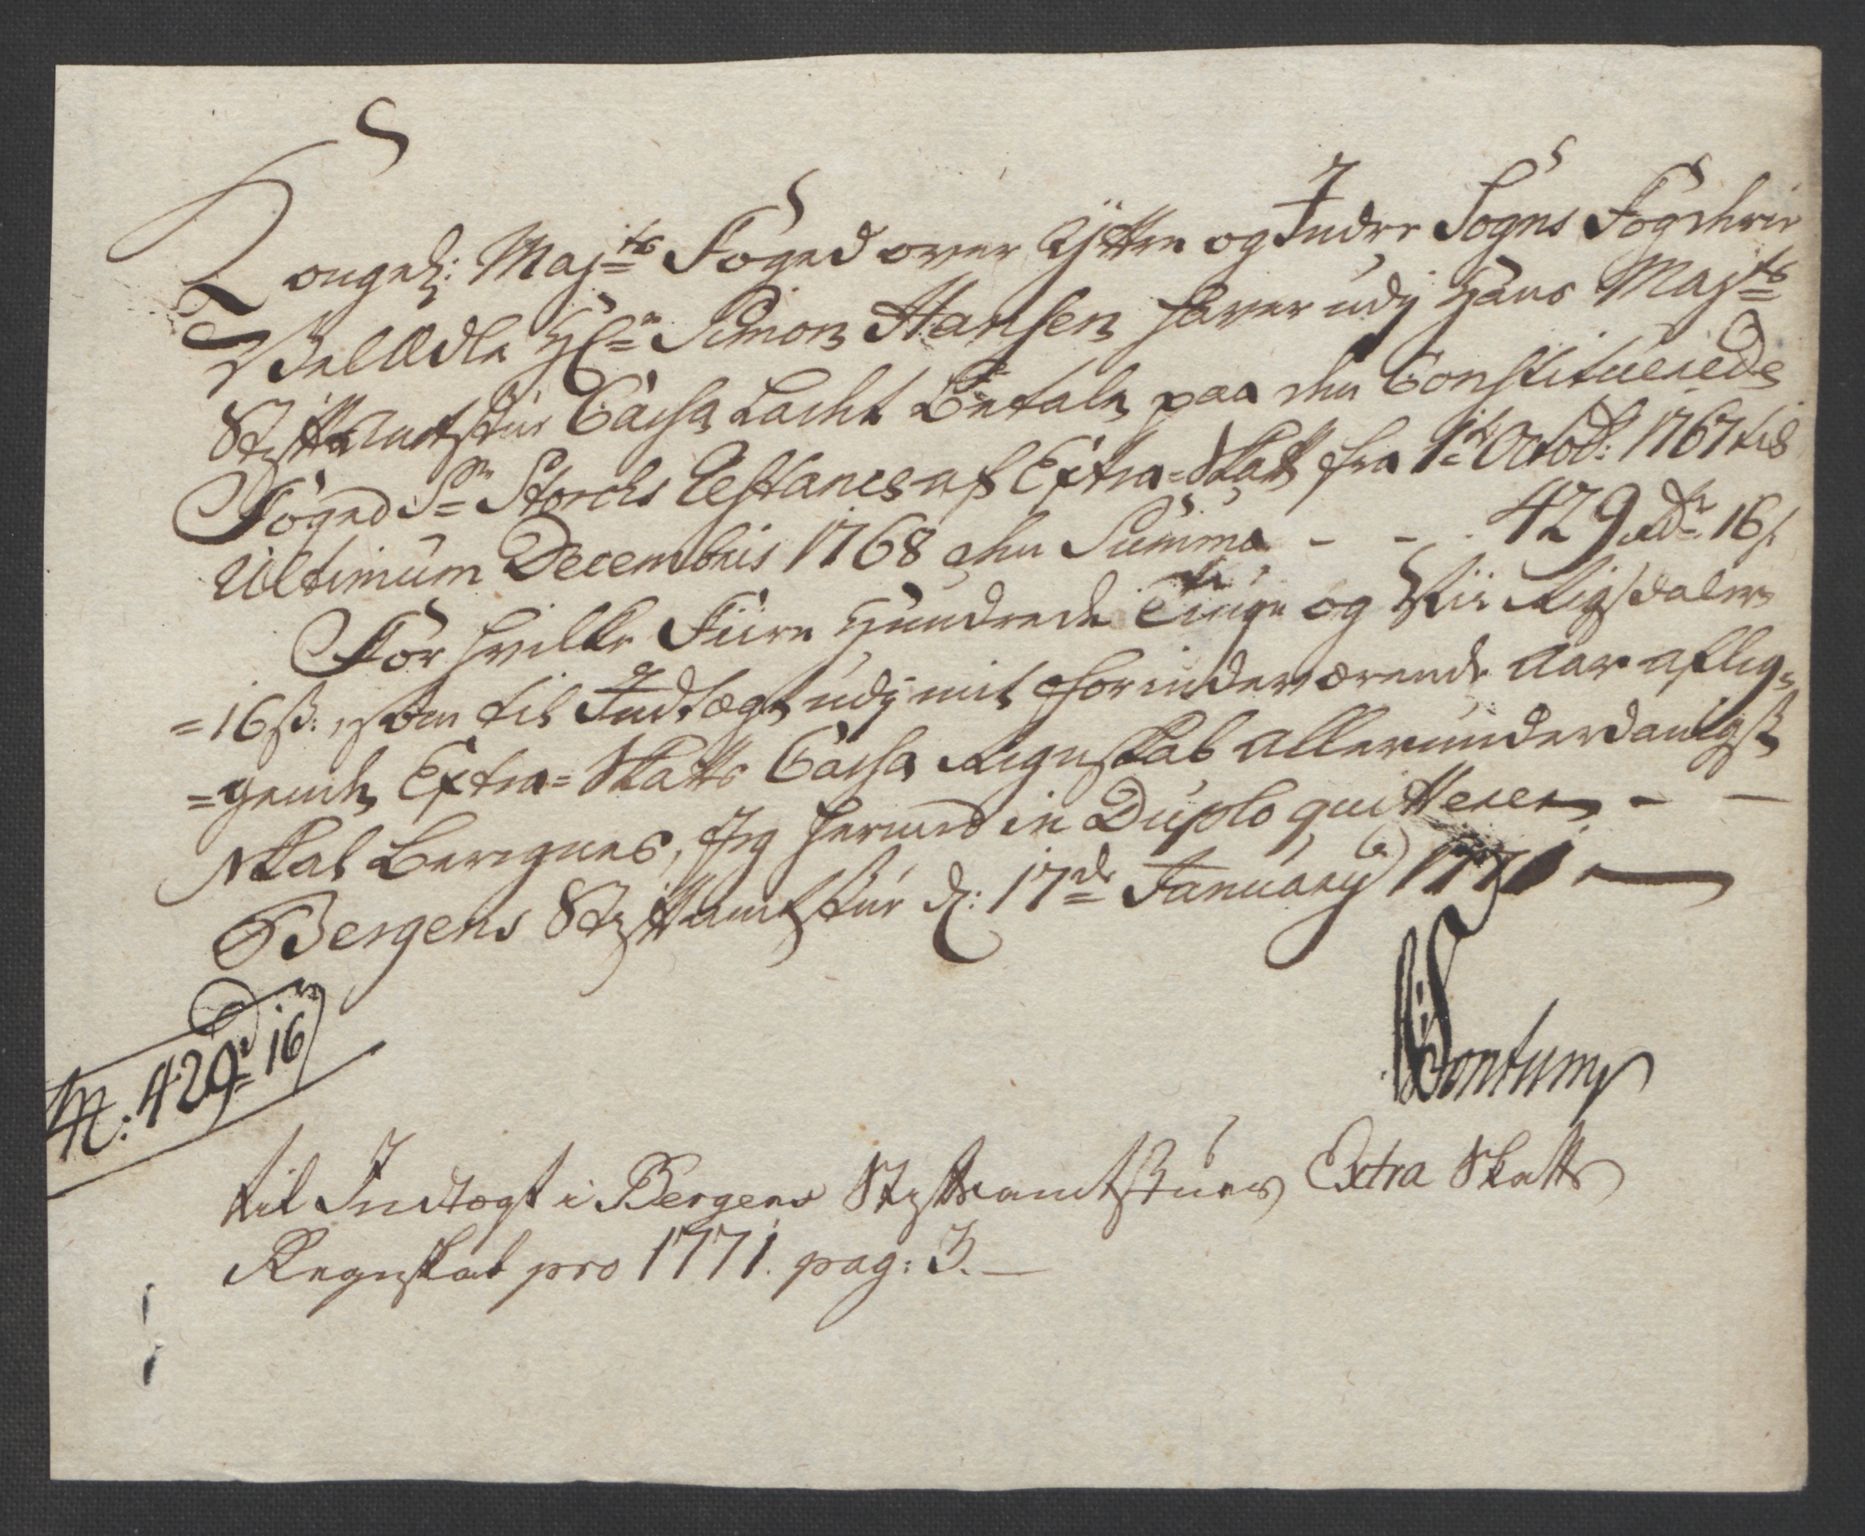 Kongel: Maj:ts Foged over Yttre og Indre Sogns Fogderie
Velædle Hr: Simon Hansen haver udj Hans Maj:ts
Stiftamtstue Cassa Ladet Betale paa den Constituerede
Foged Sr: Storchs Restance af Extra=Skatt fra 1te Octob: 1767 til
Ultimum Decembris 1768 den Summa - - - 429 rdr 16 s.
For hvilke Fiire Hundrede Tiuge og Nii Rigsdaler
=16 ß:, som til Indtægt udj mit for inderværende Aar aflig=
=gende Extra=Skatts Cassa Regnskab allerunderdanigst
skal Beregnes, Jeg herved in Duplo quitterer - -
Bergens Stiftamtstue d: 17de January 1771. —
Fontum
N: 429r 16
til Indtægt i Bergens Stiftsamtstues Extra Skatts
Regnskab pro 1771. pag: 3. —